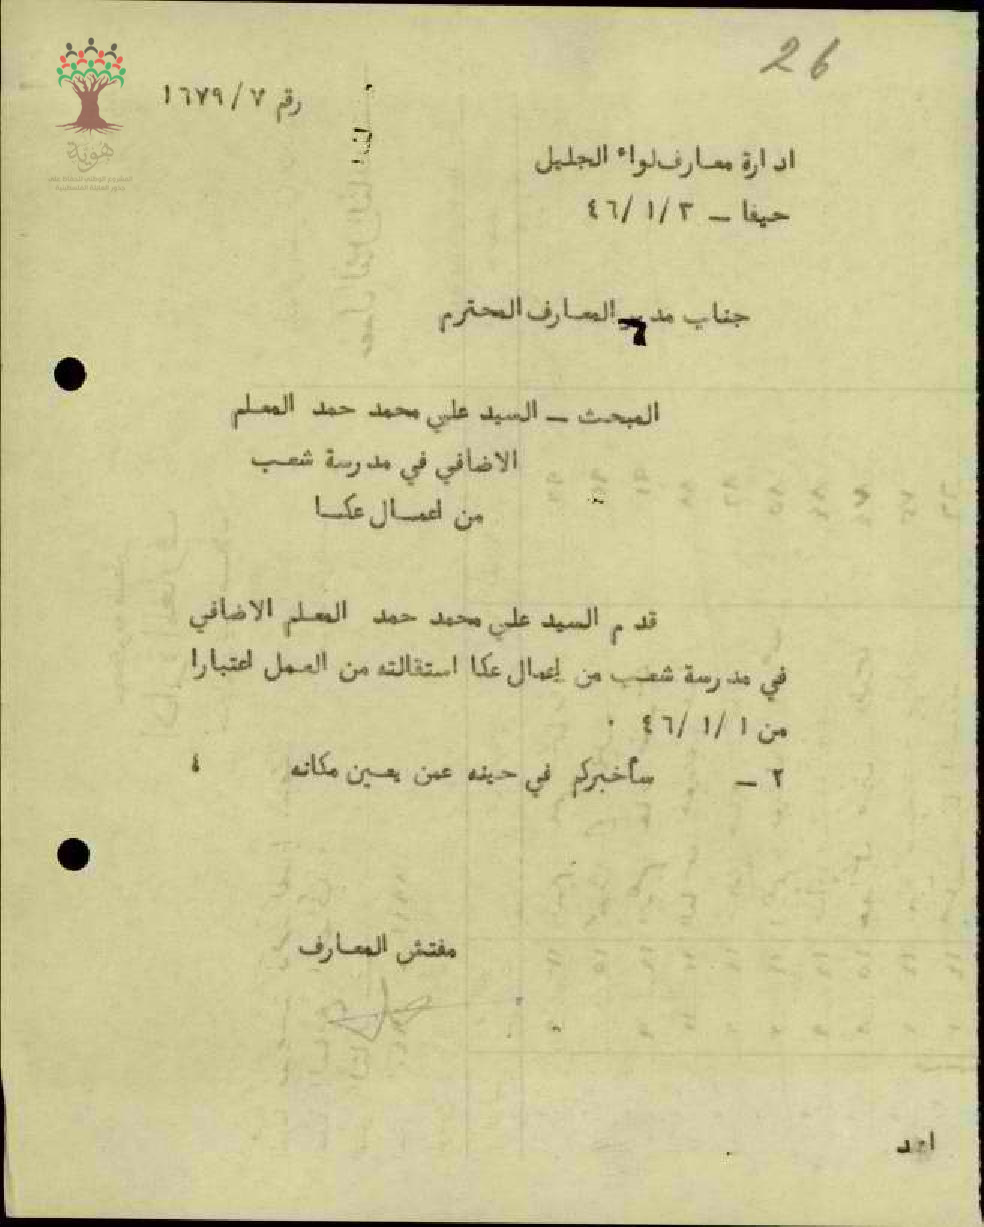 26
رقم ٧ / ١٦٧٩
هوية
ادارة معارف لواء الجليل
حيفا - ٣ /١ /٤٦
جناب مدير المعارف المحترم
المبحث - السيد علي محمد حمد المعلم
الاضافي في مدرسة شعب
من اعمال عكا
قدم السيد علي محمد حمد المعلم الاضافي
في مدرسة شعب من اعمال عكا استقالته من العمل اعتبارا
من ١ /١ /٤٦ ٠
٢ - سأخبركم في حينه عمن يعين مكانه ٤
مفتش المعارف